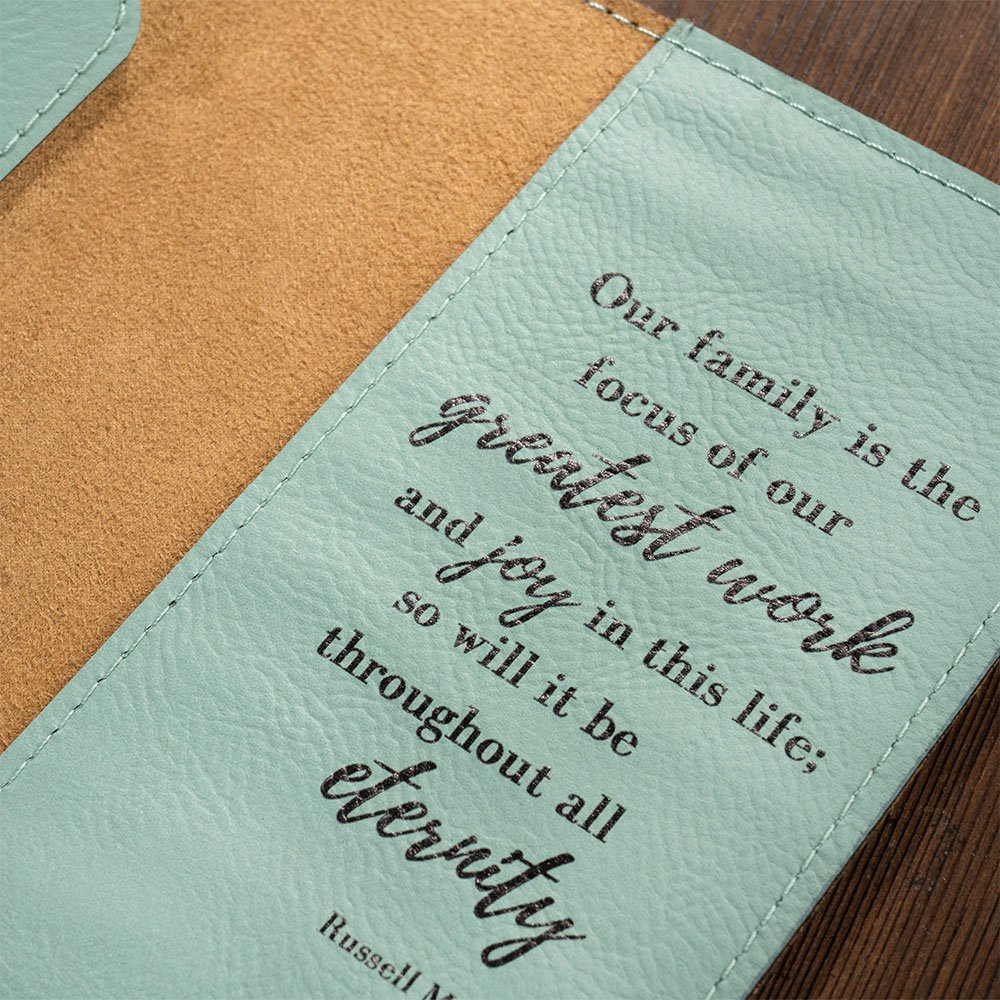 Our family is the
focus of our
greatest work
and joy in this life;
so will it be
throughout all
eternity
Russell M